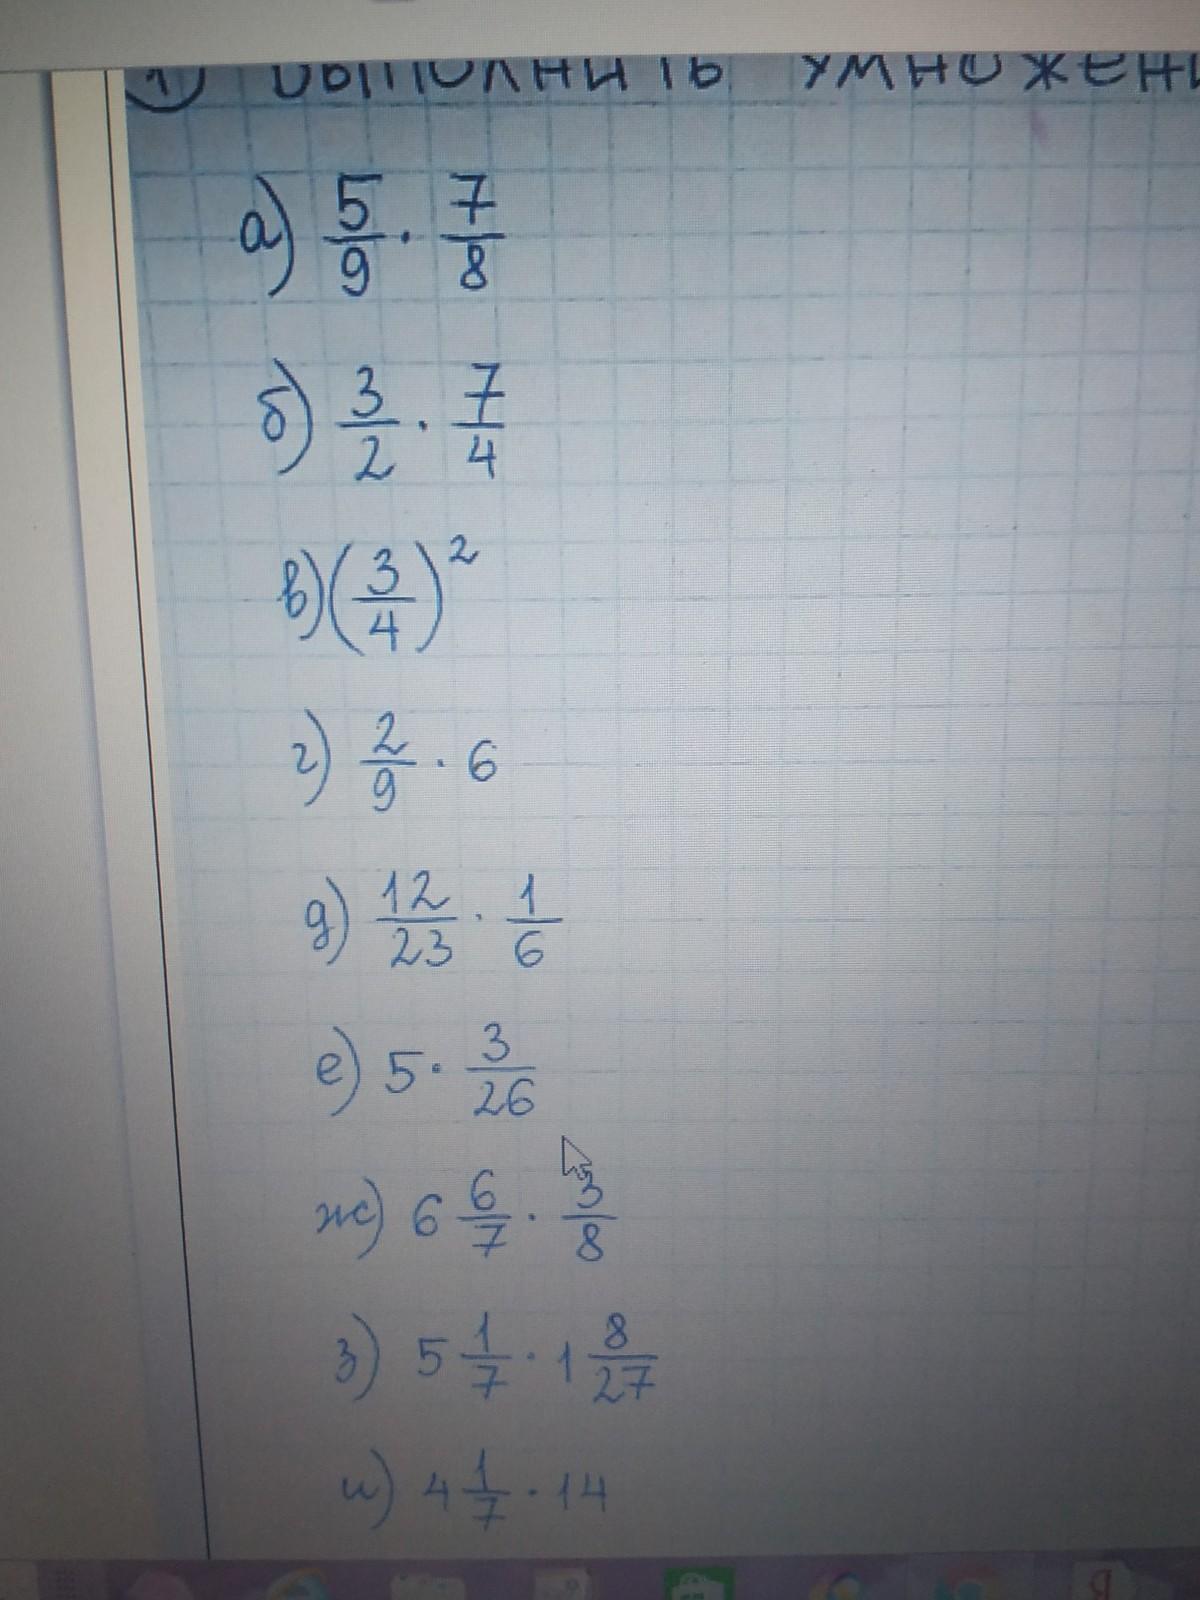 1) Выполнить умножени
а) 5/9 · 7/8
б) 3/2 · 7/4
в) (3/4)²
г) 2/9 · 6
д) 12/23 · 1/6
е) 5 · 3/26
ж) 6 6/7 · 3/8
з) 5 1/7 · 1 8/27
и) 4 1/7 · 14
Я